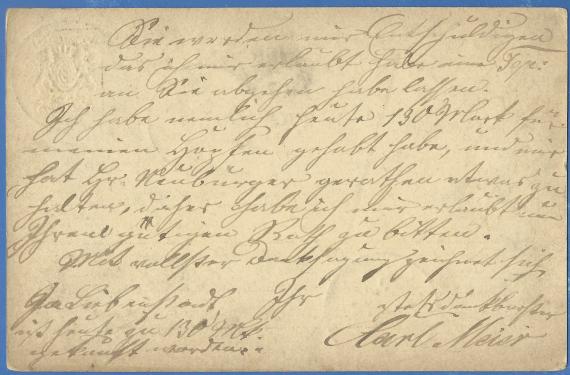 Sie werden mir Entschuldigen
das ich mir erlaubt habe eine
an Sie abgehen habe lassen.
Ich habe nemlich heute 130 Mark für
meinen Hopfen gehabt habe, und mir
hat Hr. Neuburger gerathen etwas zu
halten, daher habe ich mir erlaubt um
Ihren gütigen Rath zu bitten.
Mit vollster Danksagung zeichnet sich
Ihr stets dankbarster
Karl Meier
In Liebenstadt
ist heute zu 130 Mk.
gekauft worden.